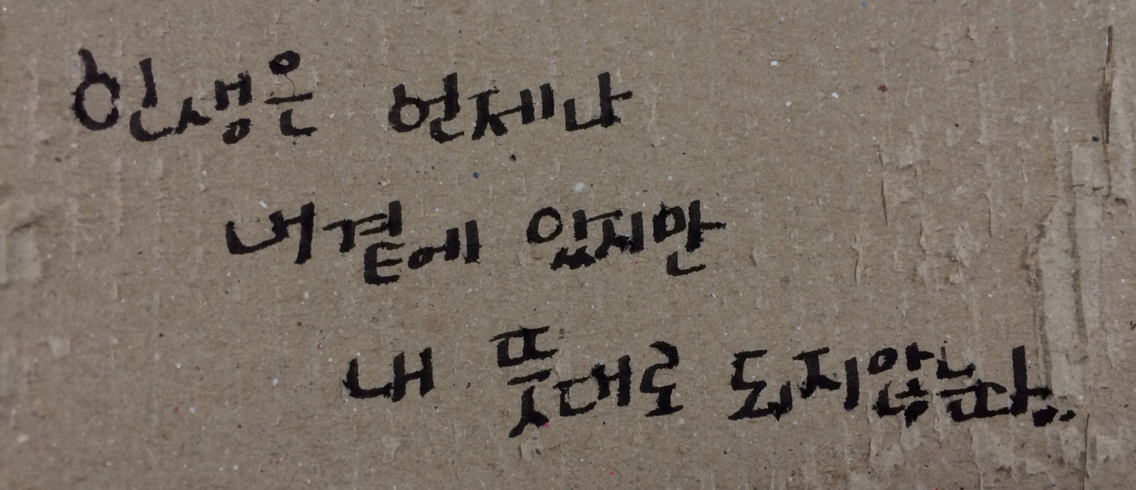 인생은 언제나
내곁에 있지만
내 뜻대로 되지않는다..